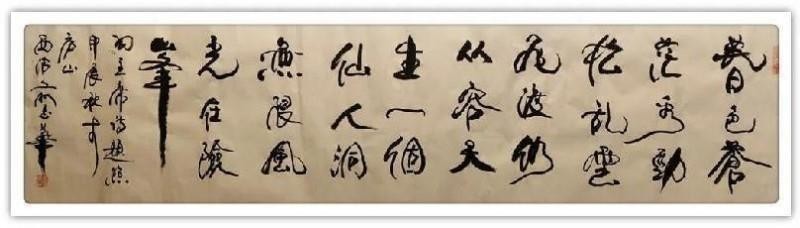 暮色蒼
茫看勁
松乱雲
飛渡仍
从容天
生一個
仙人洞
無限風
光在險
峯
毛主席詩題照
甲辰秋于
庐山